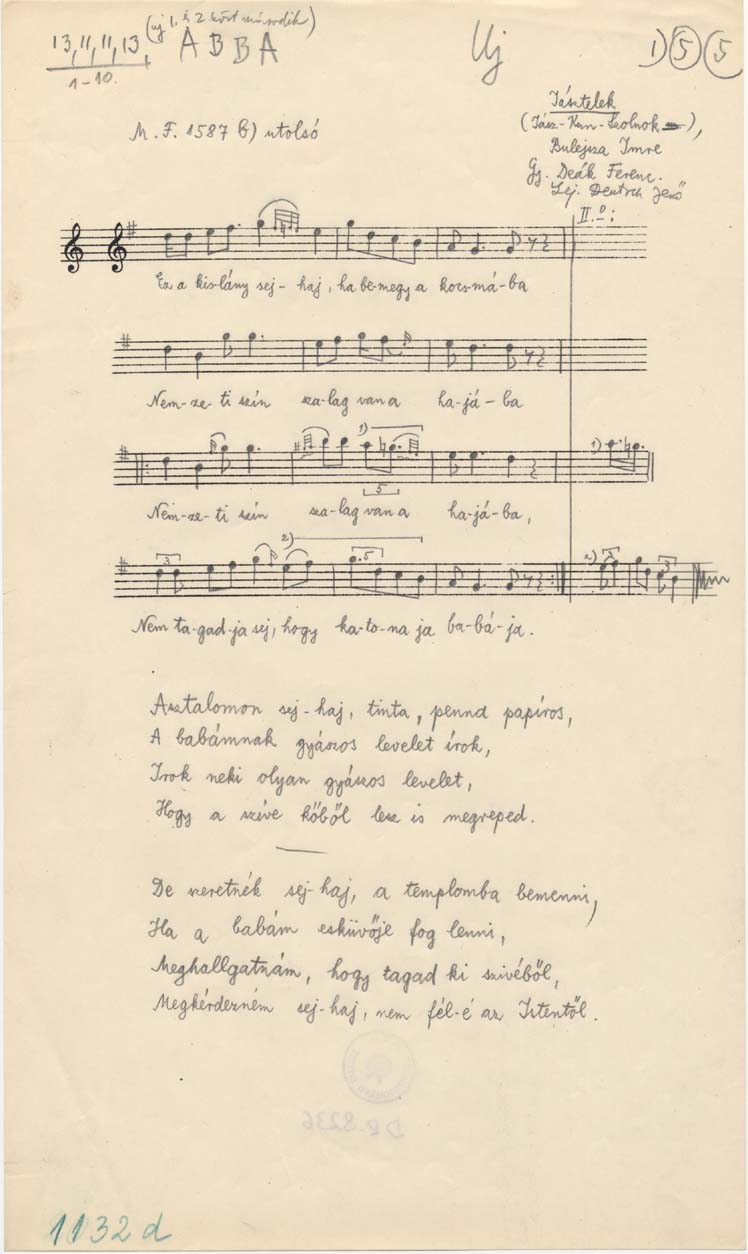 13, 11, 11, 13, (uj 1. és 2. közt második)
A B B A
1-10.
Uj
1) 5 5
M. F. 1587 b) utolsó
Jásztelek
(Jász-Kun-Szolnok),
Bulejsza Imre
Gy. Deák Ferenc.
Lej. Deutsch Jenő
II.º:
Ez a kis-lány sej-haj, ha be-megy a kocs-má-ba
Nem-ze-ti szín sza-lag van a ha-já-ba
1) 1)
5
Nem-ze-ti szín sza-lag van a ha-já-ba,
3 2) 5 2) 3 3
Nem ta-gad-ja sej, hogy ka-to-na ja ba-bá-ja.
Asztalomon sej-haj, tinta, pennd papíros,
A babámnak gyászos levelet írok,
Irok neki olyan gyászos levelet,
Hogy a szíve kőből lesz is megreped.
De szeretnék sej-haj, a templomba bemenni,
Ha a babám esküvője fog lenni,
Meghallgatnám, hogy tagad ki szivéből,
Megkérdezném sej-haj, nem fél-é az Istentől.
1132 d